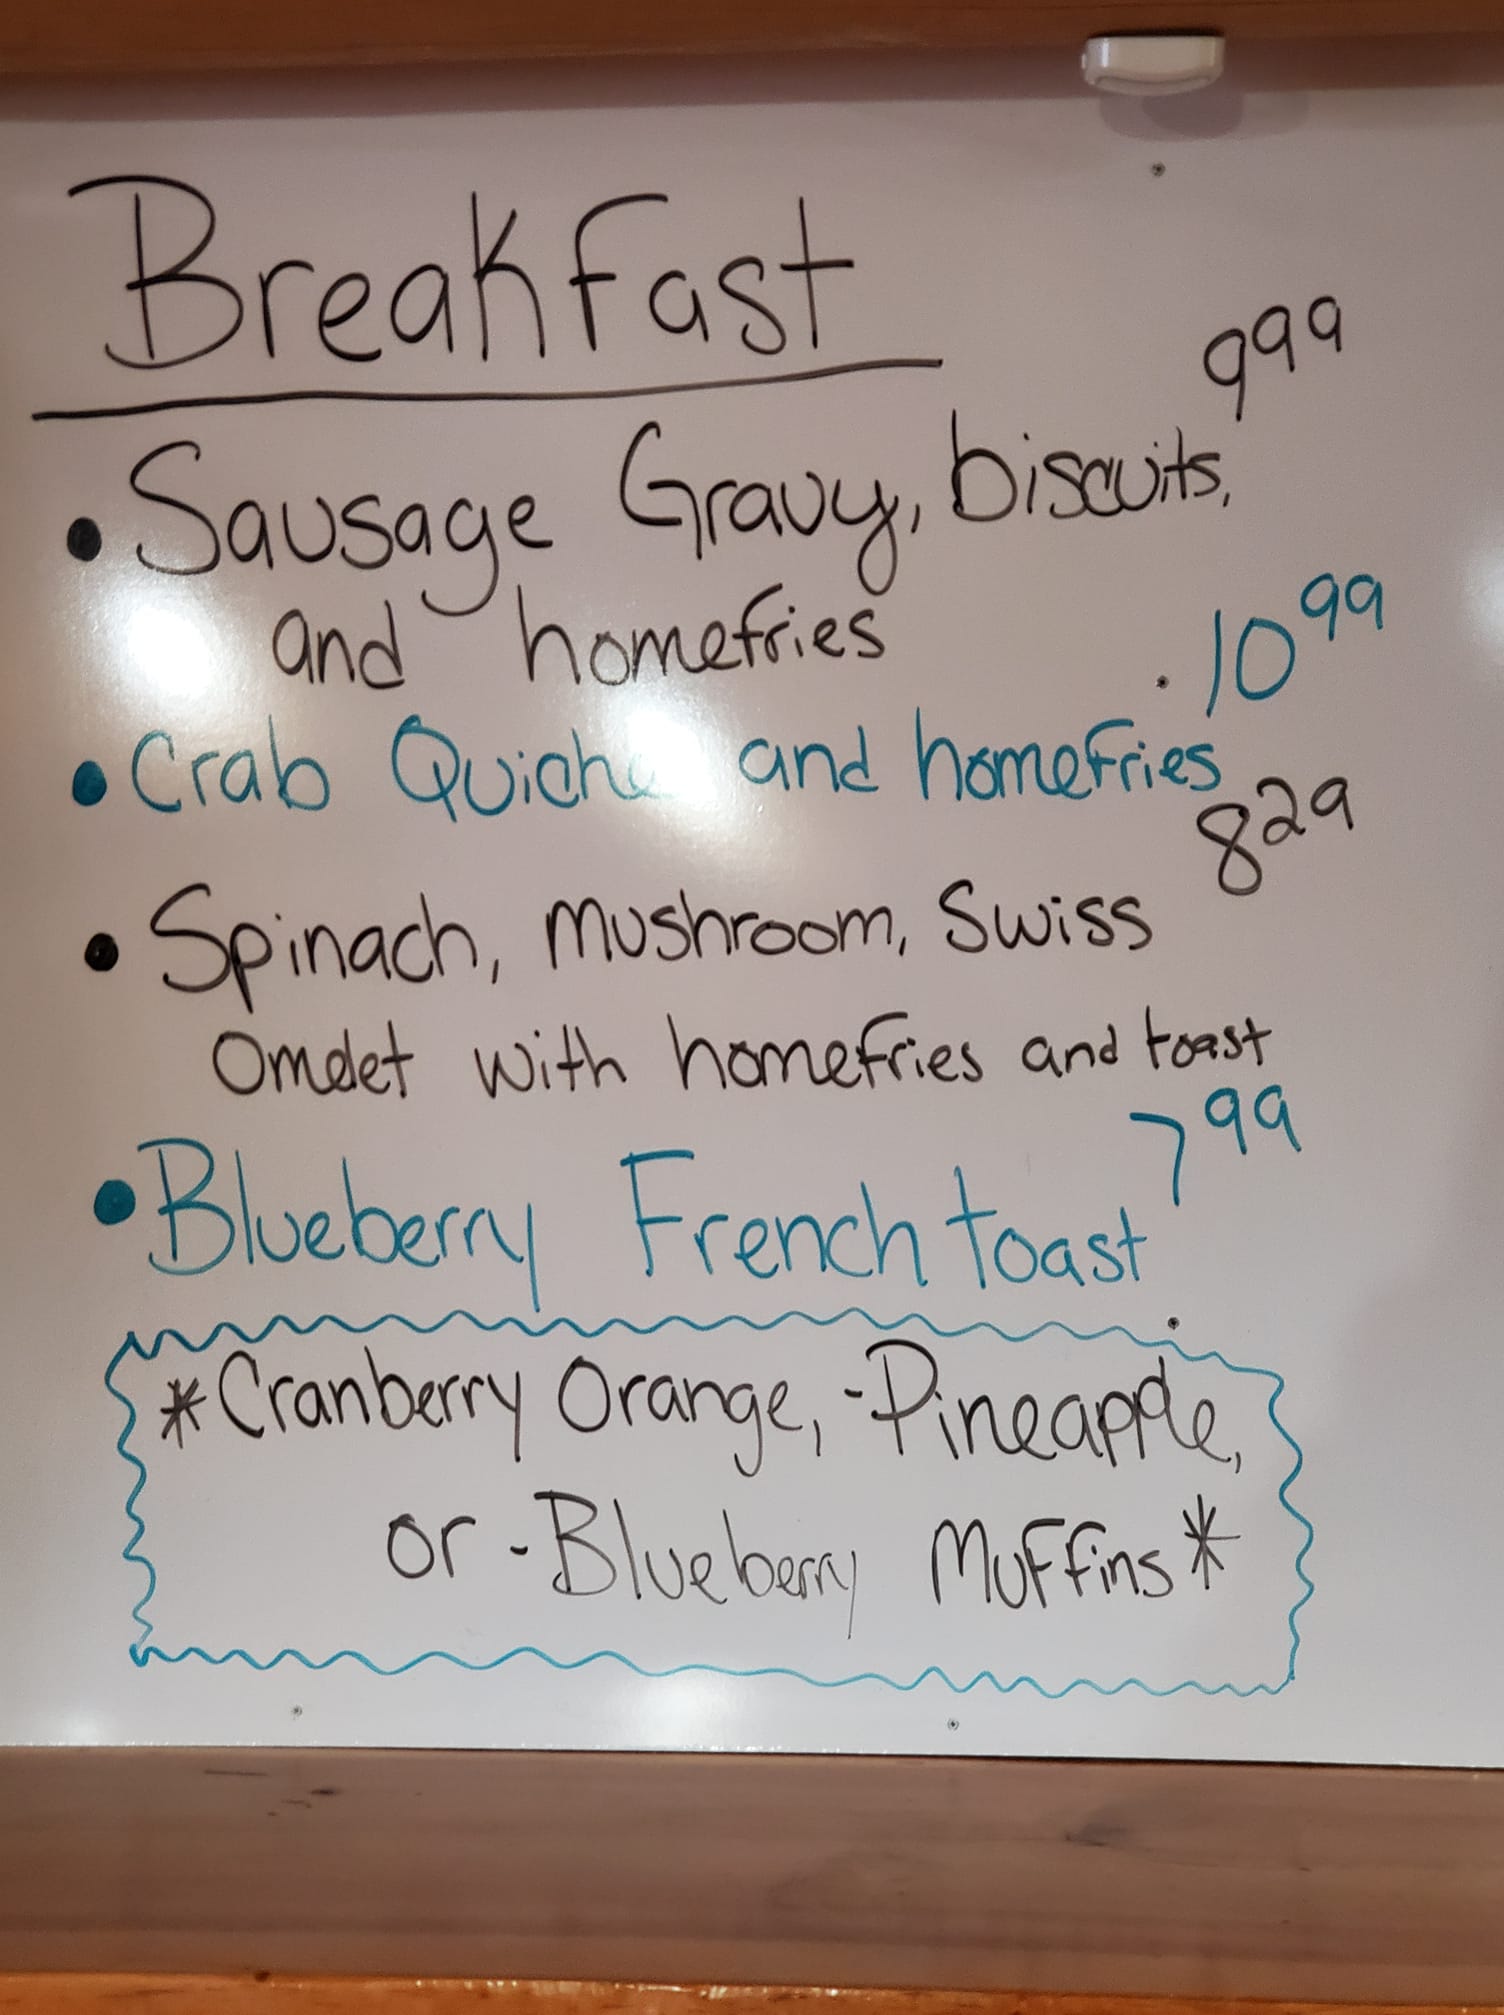 Breakfast
9.99
• Sausage Gravy, biscuits,
and homefries
10.99
• Crab Quiche and homefries
8.29
• Spinach, mushroom, Swiss
Omelet with homefries and toast
7.99
• Blueberry French toast
*Cranberry Orange, -Pineapple,
or -Blueberry Muffins*